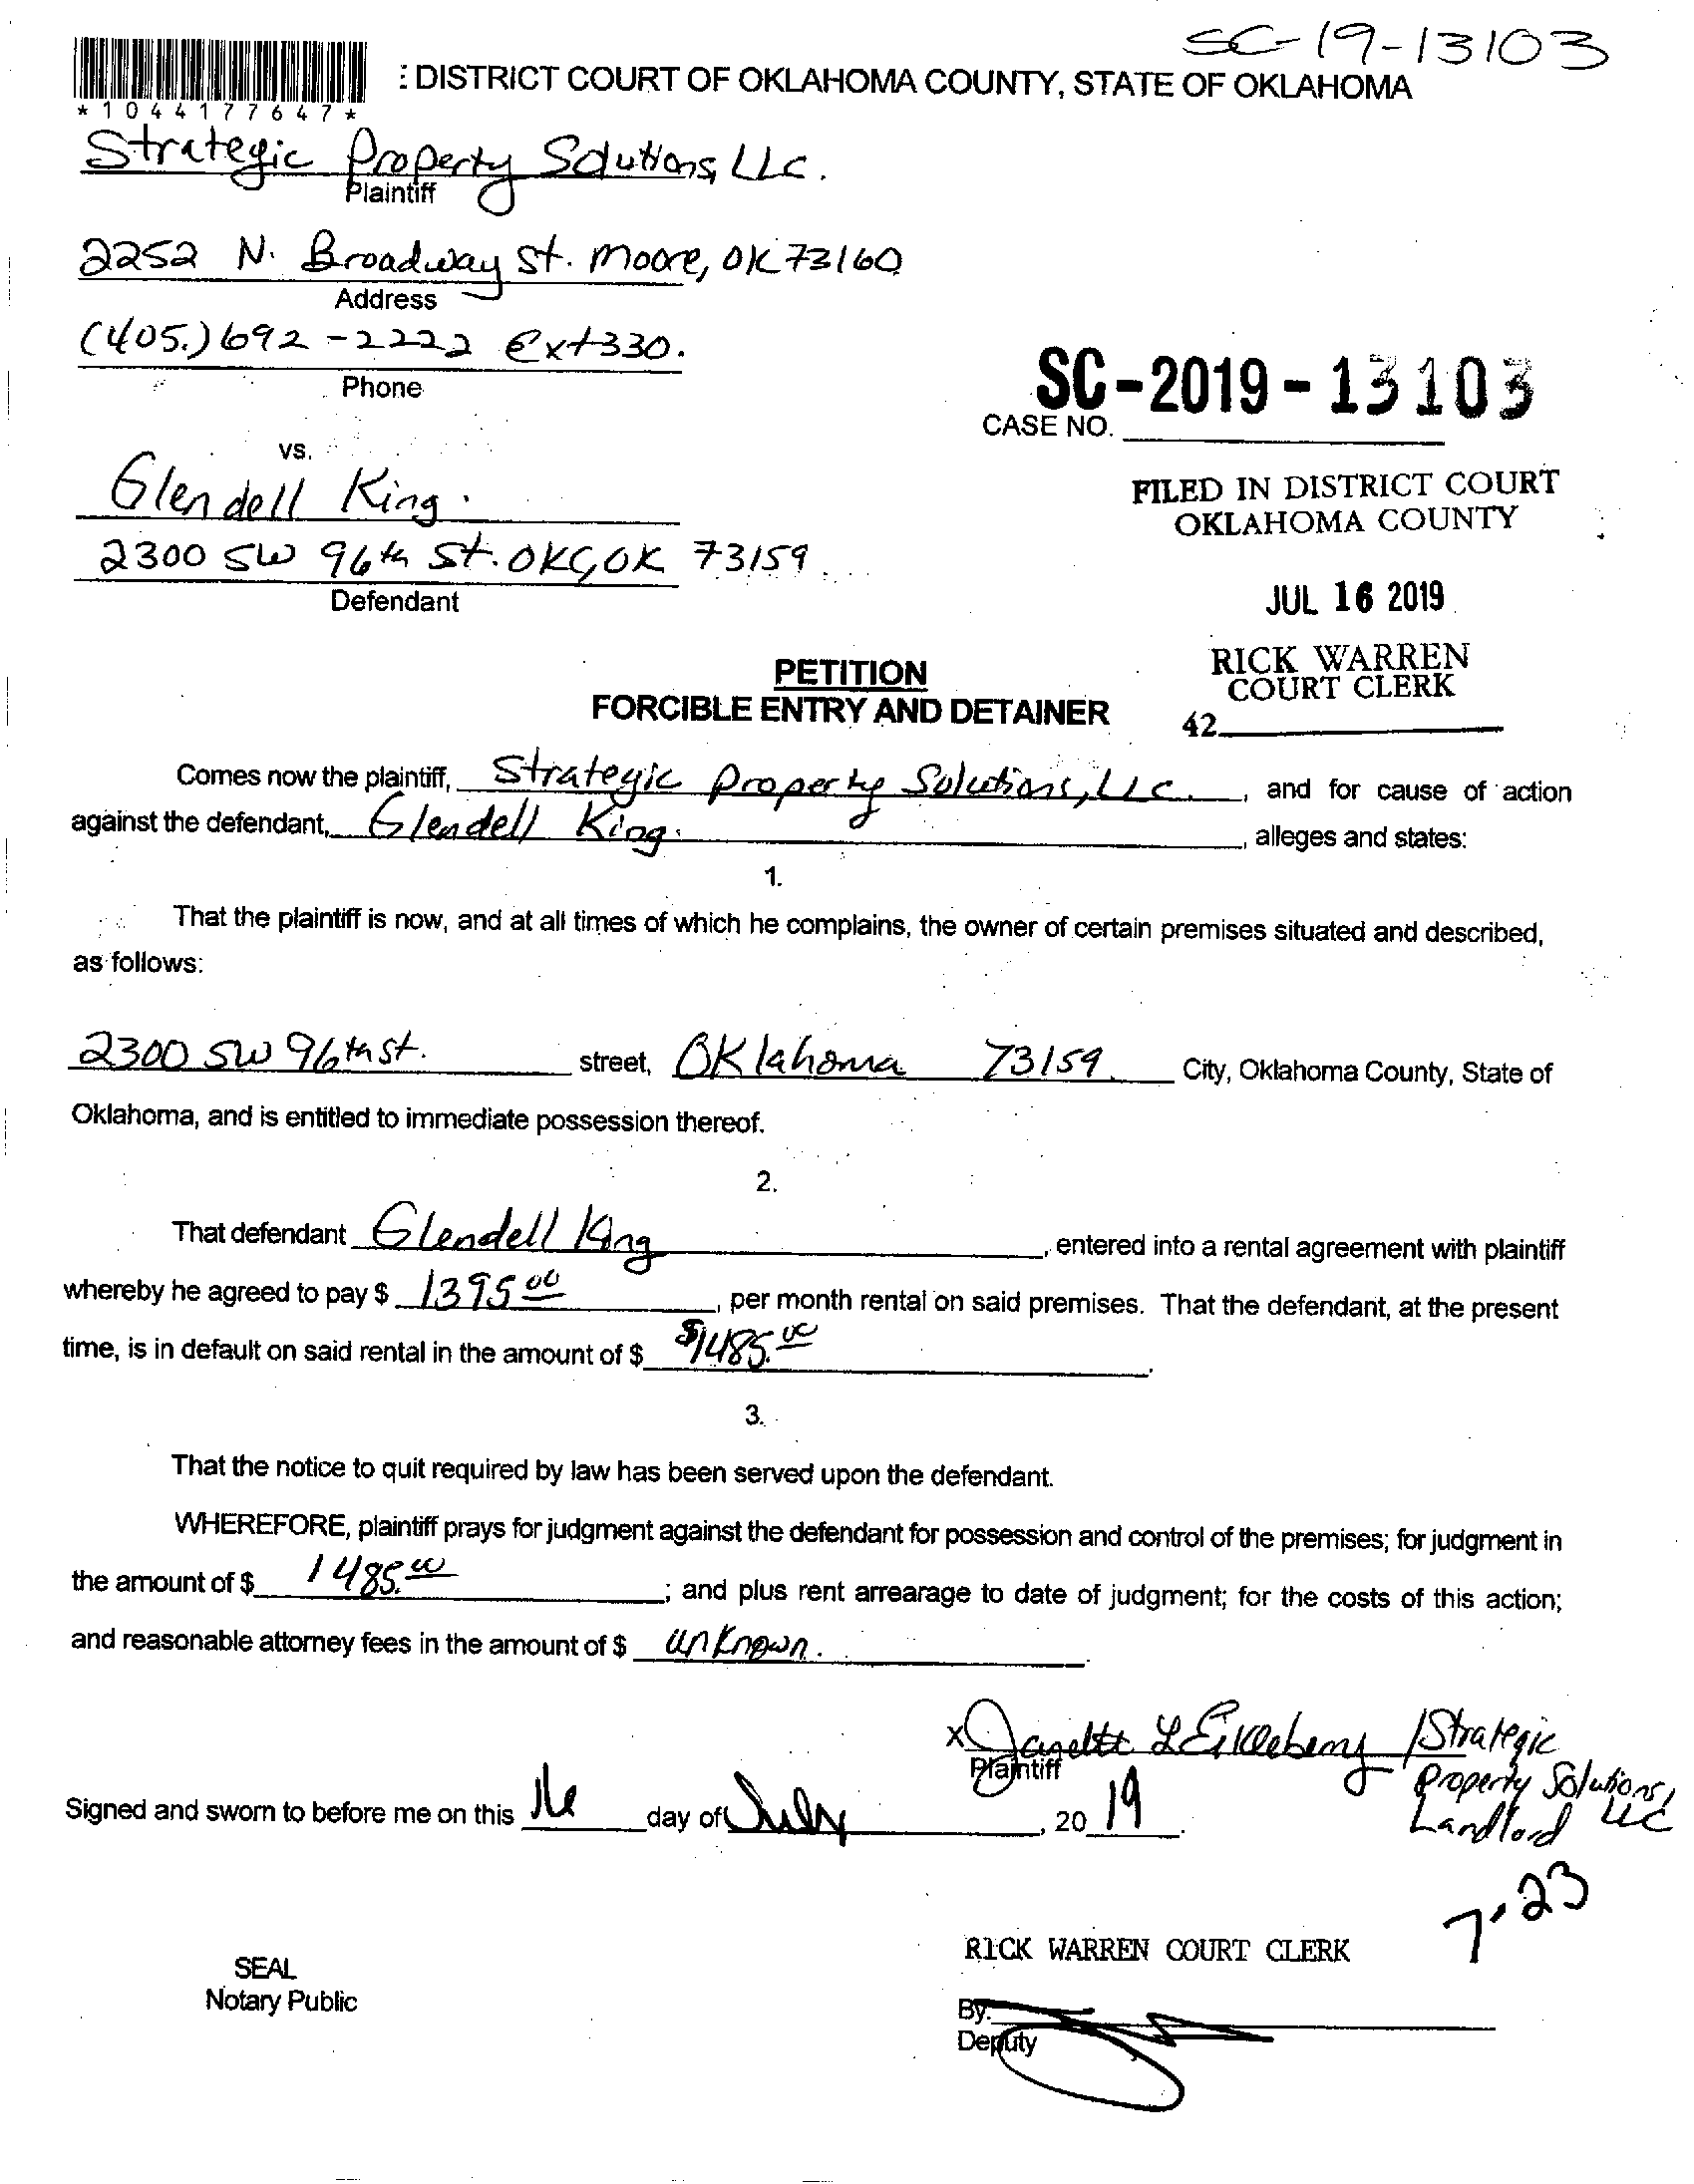 SC-19-13103
: DISTRICT COURT OF OKLAHOMA COUNTY, STATE OF OKLAHOMA
*1044177647*
Strategic Property Solutions, LLC.
Plaintiff
2252 N. Broadway St. Moore, OK 73160
Address
(405.) 692-2222 ext 330.
Phone
SC-2019-13103
CASE NO.
vs.
Glendell King.
FILED IN DISTRICT COURT
OKLAHOMA COUNTY
2300 SW 96th St. OKC, OK 73159
Defendant
JUL 16 2019
RICK WARREN
COURT CLERK
42
PETITION
FORCIBLE ENTRY AND DETAINER
Comes now the plaintiff, Strategic Property Solutions, LLC., and for cause of action
against the defendant, Glendell King., alleges and states:
1.
That the plaintiff is now, and at all times of which he complains, the owner of certain premises situated and described,
as follows:
2300 SW 96th St. street, Oklahoma 73159 City, Oklahoma County, State of
Oklahoma, and is entitled to immediate possession thereof.
2.
That defendant Glendell King, entered into a rental agreement with plaintiff
whereby he agreed to pay $ 1395 00, per month rental on said premises. That the defendant, at the present
time, is in default on said rental in the amount of $ $1485.00.
3.
That the notice to quit required by law has been served upon the defendant.
WHEREFORE, plaintiff prays for judgment against the defendant for possession and control of the premises; for judgment in
the amount of $ 1485.00; and plus rent arrearage to date of judgment; for the costs of this action;
and reasonable attorney fees in the amount of $ unknown.
X Janette L / Strategic
Plaintiff
Property Solutions, LLC
Landlord
Signed and sworn to before me on this 16 day of July, 2019.
7-23
RICK WARREN COURT CLERK
SEAL
Notary Public
By:
Deputy